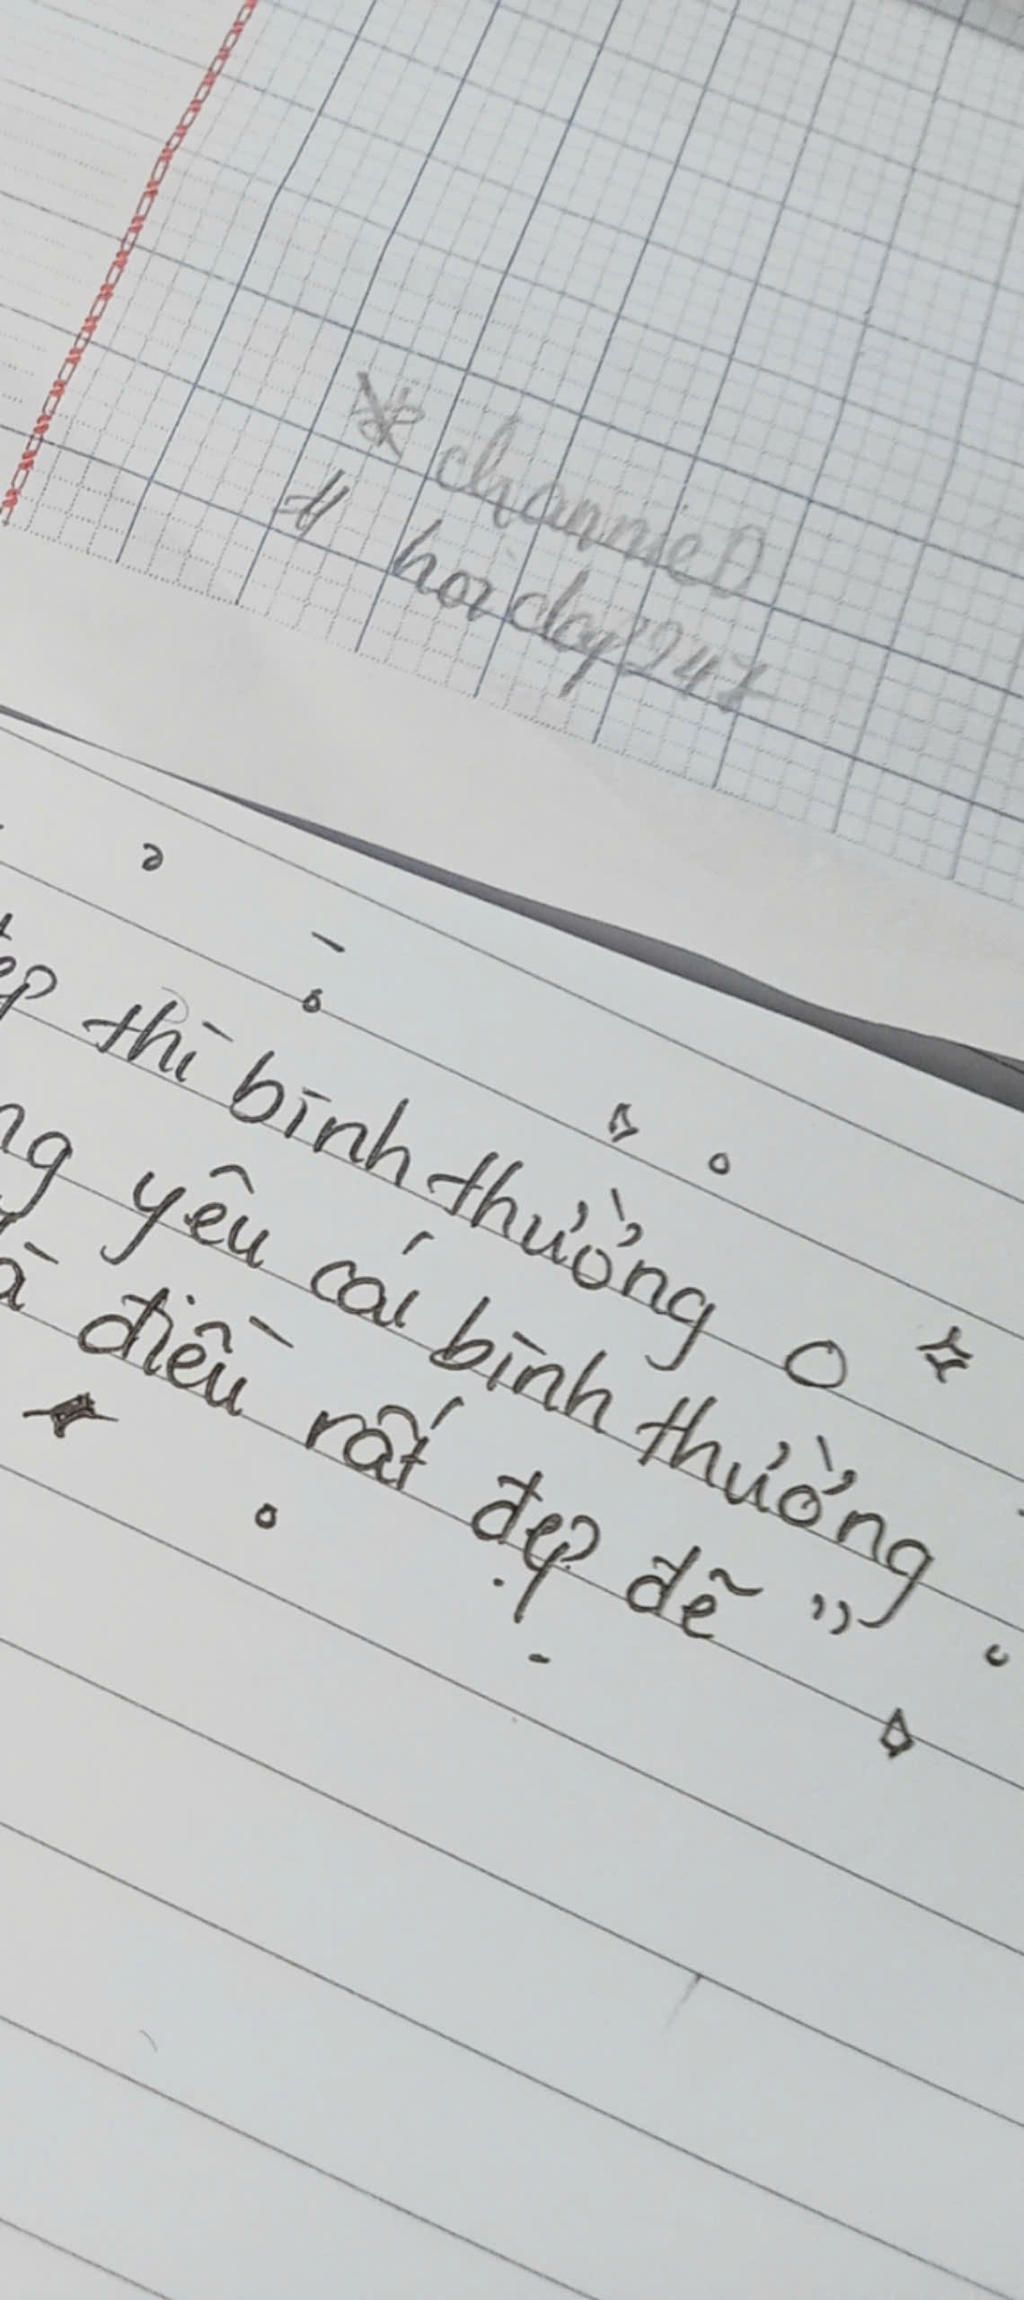 channie
hoidap247
thì bình thường
yêu cái bình thường
điều rất đẹp đẽ"